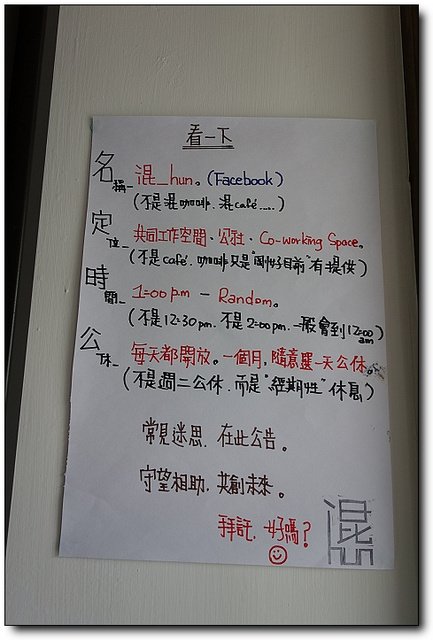 看一下
名稱_ 混_hun。(Facebook)
(不是混咖啡、混café.....)
定位_ 共同工作空間、公社、Co-working Space。
(不是café. 咖啡只是"剛好目前"有提供)
時間_ 1:00 pm – Random。
(不是12:30pm. 不是2:00pm. 一般會到12:00am)
公休_ 每天都開放。一個月，隨意選一天公休。
(不是週二公休. 而是"經期性"休息)
常見迷思. 在此公告。
守望相助. 共創未來。
拜託. 好嗎?
混
hun